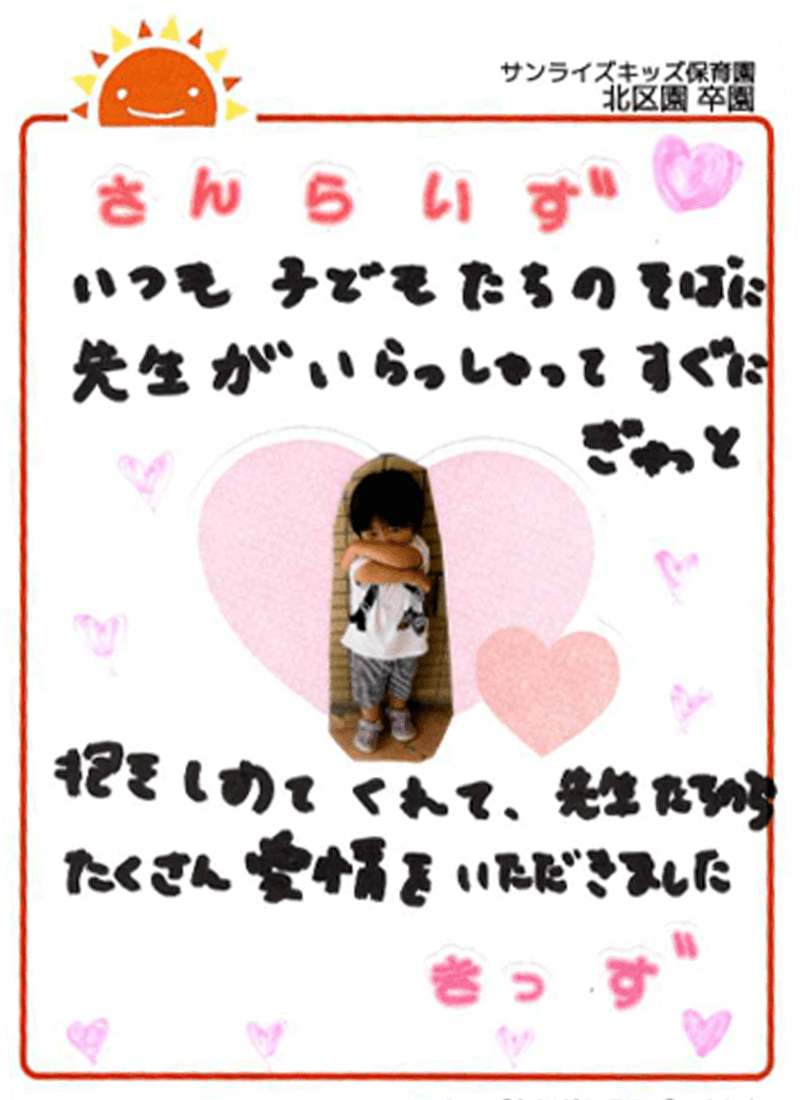 サンライズキッズ保育園
北区園 卒園
さんらいず
いつも 子どもたちのそばに
先生がいらっしゃってすぐに
ぎゅっと
抱きしめてくれて、先生たちから
たくさん愛情をいただきました
きっず